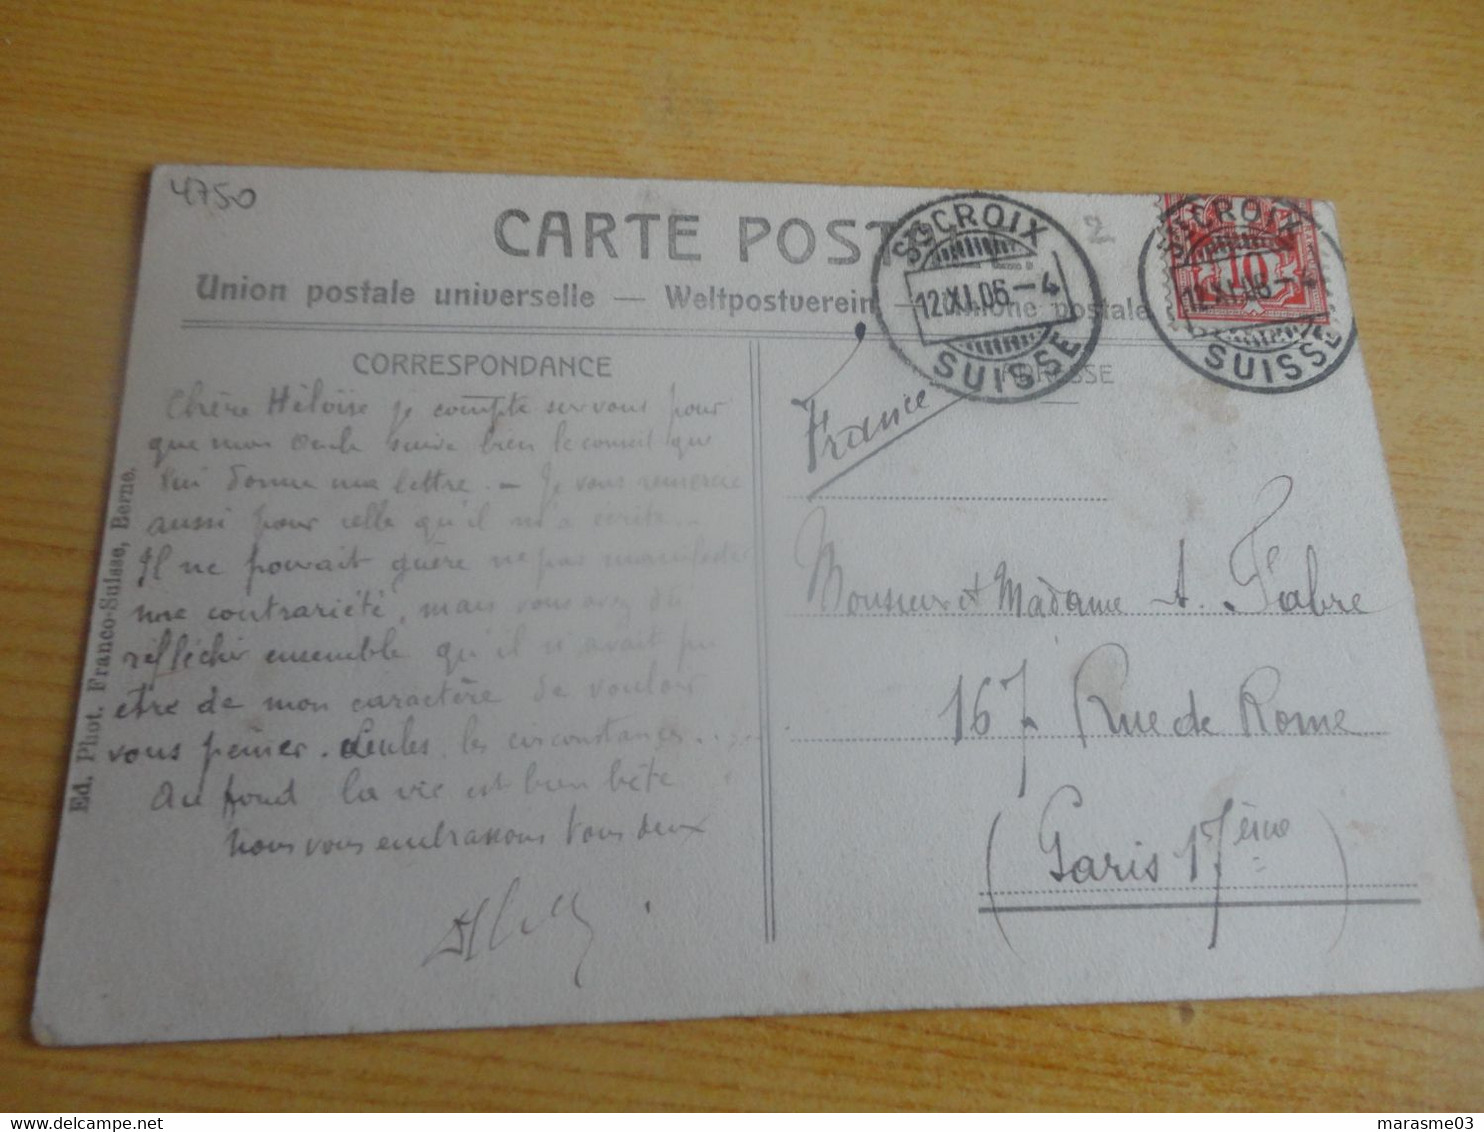 4750
CARTE POST
2
Union postale universelle — Weltpostverein — Unione postale
STE CROIX
12.XI.06-4
SUISSE
STE CROIX
10
12.XI.06-4
SUISSE
CORRESPONDANCE
Chère Héloïse je compte sur vous pour
que mon oncle suive bien le conseil que
lui donne ma lettre. — Je vous remercie
aussi pour celle qu'il m'a écrite..
Il ne pouvait guère ne pas manifester
une contrariété, mais vous avez dû
réfléchir ensemble qu'il n'avait pu
être de mon caractère de vouloir
vous peiner. Seules, les circonstances.....
Au fond la vie est bien bête
Nous vous embrassons tous deux
Ed. Phot. Franco-Suisse, Berne.
France
Monsieur et Madame A. Fabre
167 Rue de Rome
(Paris 17ème)
marasme03